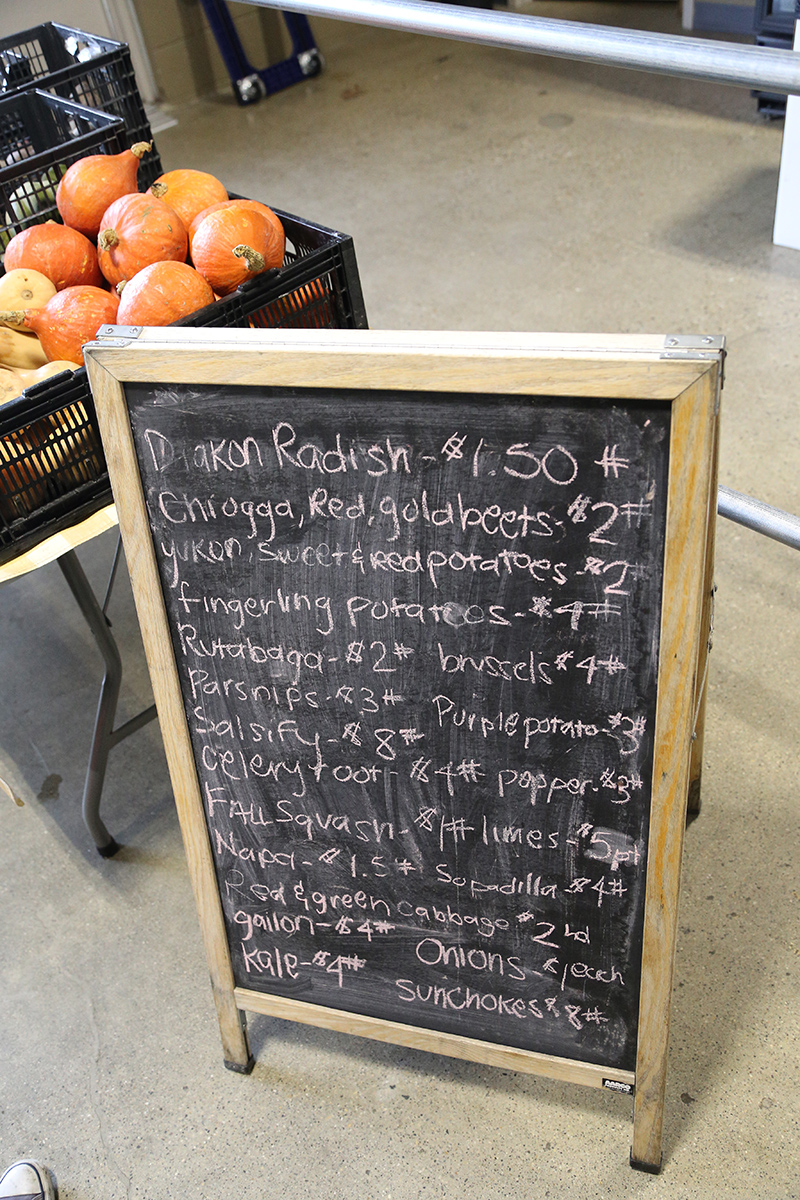 Diakon Radish - $1.50 #
Chiogga, Red, gold beets - $2 #
yukon, sweet & red potatoes - $2 #
fingerling potatoes - $4 #
Rutabaga - $2 # brussels $4 #
Parsnips - $3 # Purple potato - $3 #
Salsify - $8 #
Celery root - $4 # pepper - $3 #
FALL Squash - $1 # limes - $5 pt
Napa - $1.5 # Sapadilla - $4 #
Red & green cabbage $2 hd
gailon - $4 #
Kale - $4 # Onions - $1 each
Sunchokes $8 #